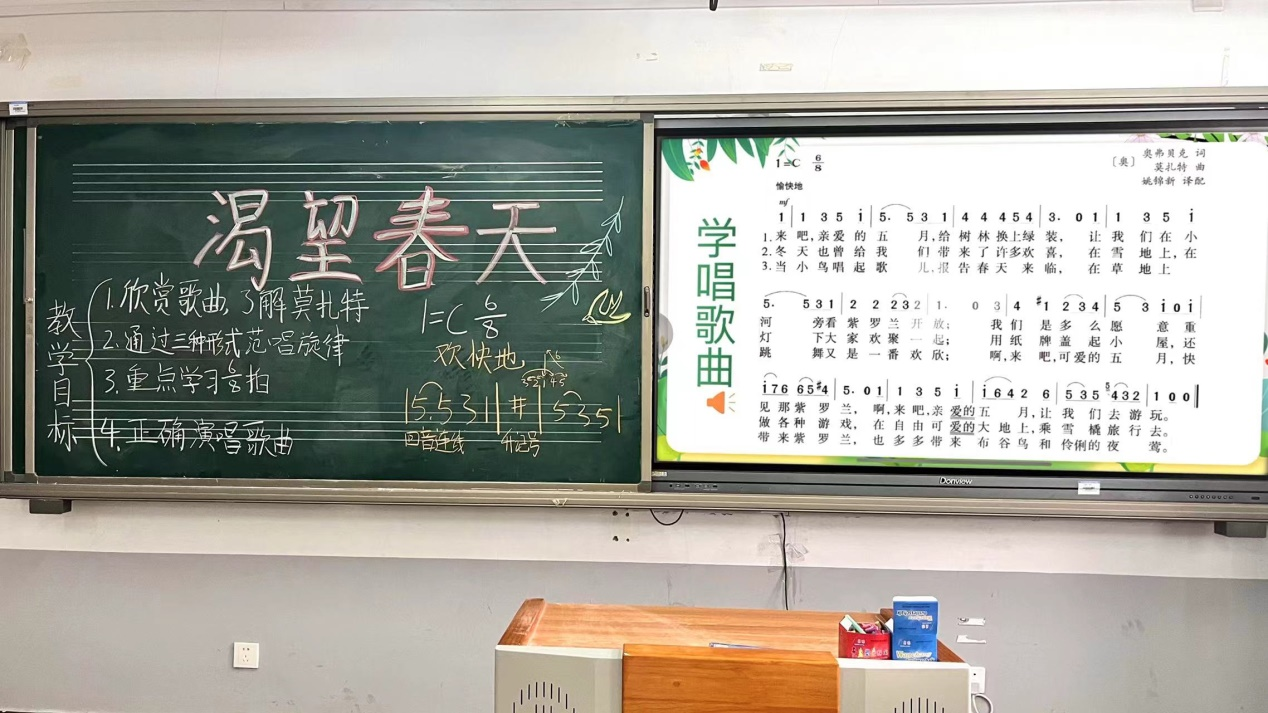 渴望春天
教学目标
1.欣赏歌曲,了解莫扎特
2.通过三种形式范唱旋律
3.重点学习6/8拍
4.正确演唱歌曲
1=C 6/8
欢快地
|5.531|#|535|
升记号
学唱歌曲
1=C 6/8
[奥] 奥弗贝克 词
莫扎特 曲
姚锦新 译配
愉快地
mf
1 | 1 3 5 i | 5. 5 3 1 | 4 4 4 5 4 | 3. 0 1 | 1 3 5 i
1.来 吧,亲爱的 五 月,给 树 林 换上绿 装, 让 我 们 在 小
2.冬 天 也曾 给 我 们 带 来 了 许多欢 喜, 在 雪 地 上,在
3.当 小 鸟唱 起 歌 儿,报 告 春天 来 临, 在 草 地 上
5. 5 3 1 | 2 2 2 3 2 | 1. 0 3 | 3 4 #1 2 3 4 | 5 3 i 0 i |
河 旁看 紫 罗 兰 开 放; 我 们 是 多 么 愿 意 重
灯 下大 家 欢 聚 一 起; 用 纸 牌 盖 起 小 屋,还
跳 舞又 是 一 番 欢 欣; 啊,来 吧,可爱的 五 月,快
i 7 6 6 5 #4 | 5. 0 1 | 1 3 5 i | i 6 4 2 | 5 3 5 4 3 2 | 1 0 0 ‖
见 那 紫 罗 兰, 啊,来 吧,亲 爱的 五 月,让 我 们 去 游 玩。
做 各 种 游 戏, 在 自 由 可 爱的 大 地 上,乘 雪 橇 旅 行 去。
带 来 紫 罗 兰, 也 多 多 带 来 布 谷 鸟 和 伶俐的 夜 莺。
Donview